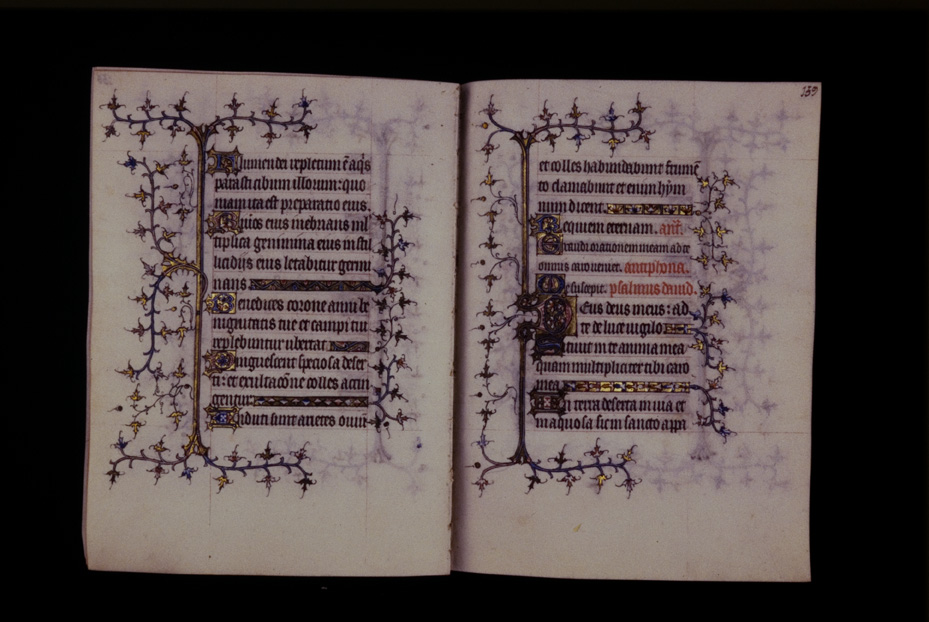 Flumen dei repletum ē aq̄s
parasti cibum illorum: quo
niam ita est preparatio eius.
Riuos eius inebrians mul
tiplica genimina eius in stil
licidiis eius letabitur germi
nans
Benedices corone anni be
nignitatis tue et campi tui
replebuntur ubertate
Pinguescent speciosa deser
ti: et exultacōne colles accin
gentur
Induti sunt arietes ouiū
139
et colles habundabunt frumē
to clamabunt et enim hym
num dicent.
Requiem eternam. ant̄.
Exaudi orationem meam ad te
omnis caro veniet. antiphona.
Me suscepit. psalmus dauid.
Deus deus meus: ad
te de luce uigilo
Sitiuit in te anima mea
quam multipliciter tibi caro
mea
In terra deserta inuia et
inaquosa sicut in sancto appa